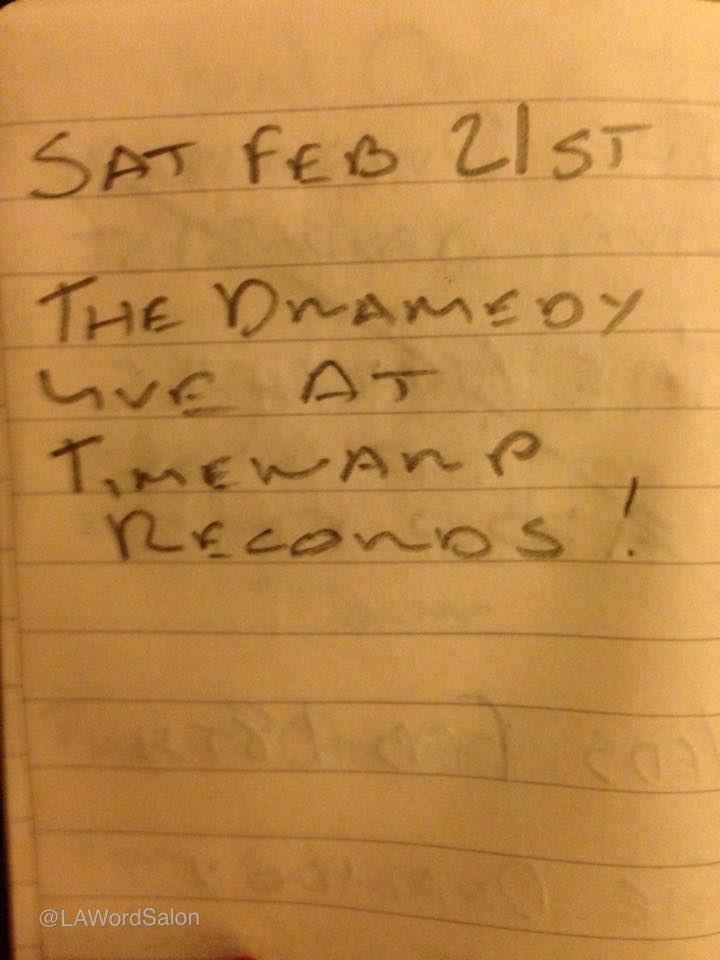 SAT FEB 21ST
THE DRAMEDY
LIVE AT
TIMEWARP
RECORDS!
@LAWordSalon